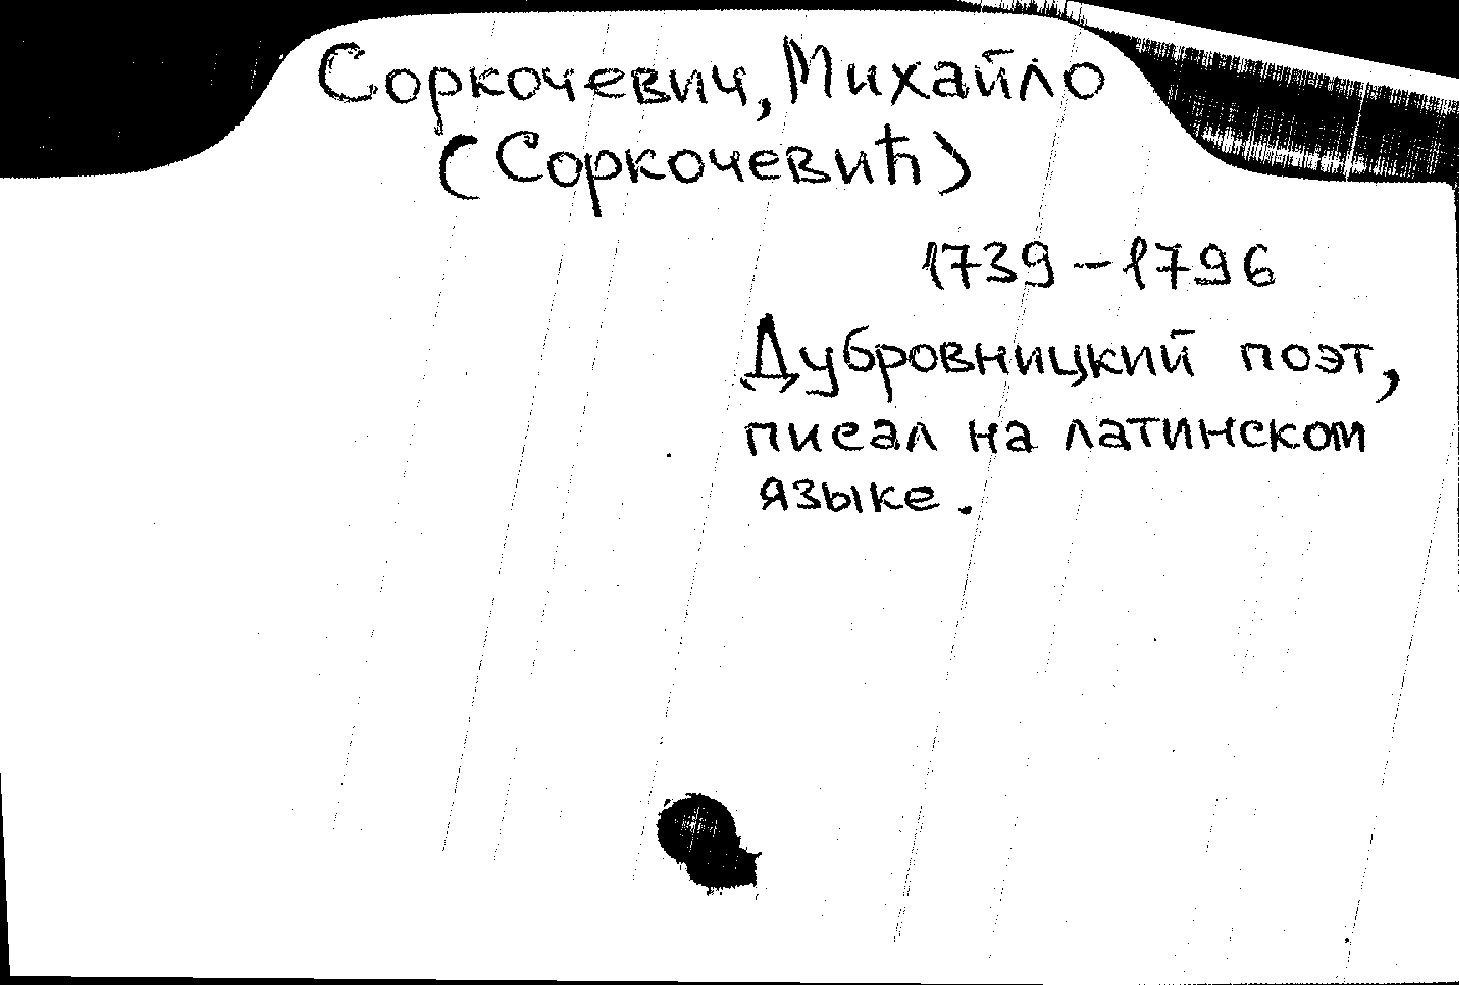 Соркочевич, Михайло
(Соркочевић)
1739-1796
Дубровницкий поэт,
писал на латинском
языке.